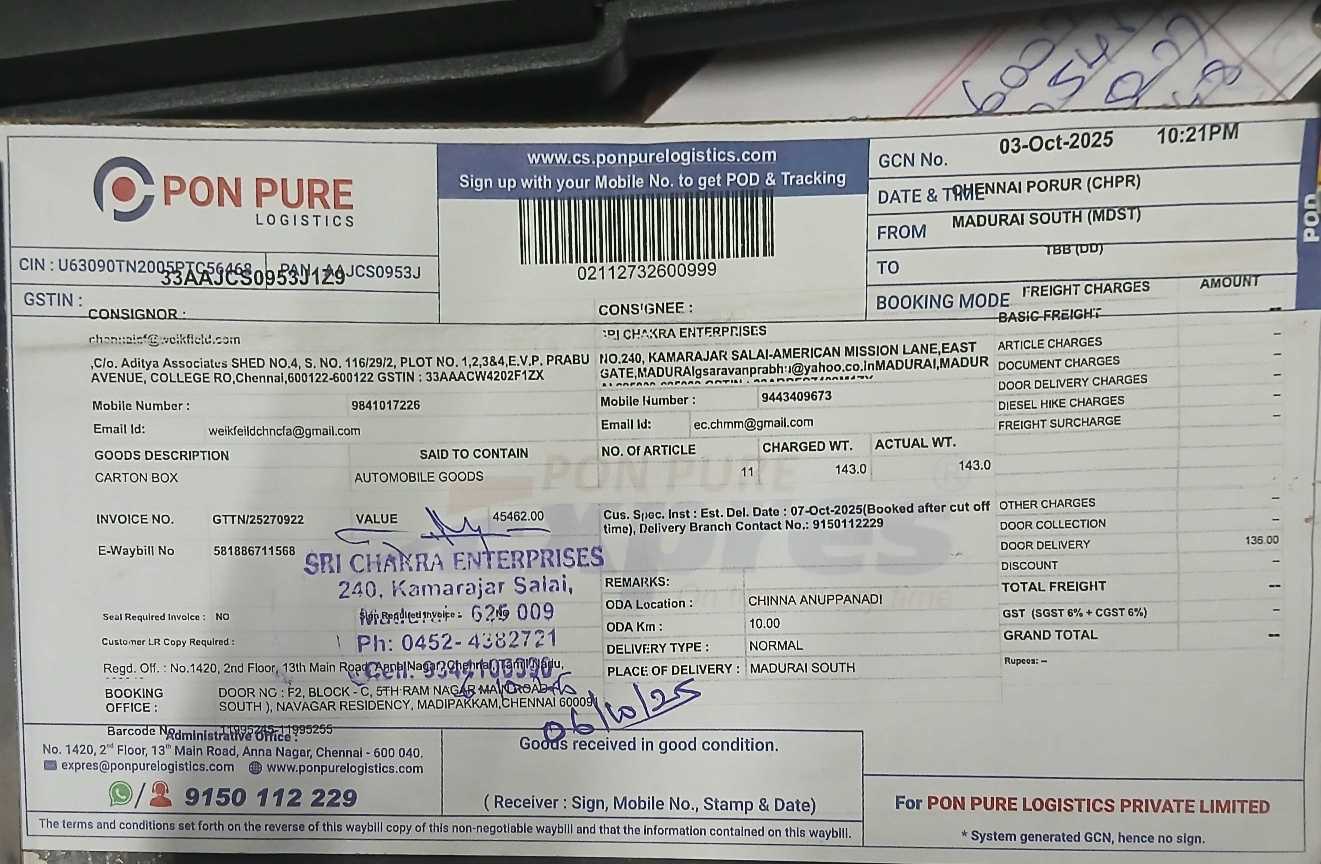 600
PON PURE
LOGISTICS
www.cs.ponpurelogistics.com
Sign up with your Mobile No. to get POD & Tracking
02112732600999
GCN No.
03-Oct-2025 10:21PM
DATE & TIME
CHENNAI PORUR (CHPR)
FROM
MADURAI SOUTH (MDST)
TO
TBB (DD)
BOOKING MODE
POD
CIN : U63090TN2005PTC56468 PAN : AAJCS0953J
33AAJCS0953J1Z9
GSTIN :
CONSIGNOR :
,C/o. Aditya Associates SHED NO.4, S. NO. 116/29/2, PLOT NO. 1,2,3&4,E.V.P. PRABU
AVENUE, COLLEGE RO,Chennai,600122-600122 GSTIN : 33AAACW4202F1ZX
Mobile Number : 9841017226
Email Id: weikfeildchncfa@gmail.com
CONSIGNEE :
CHAKRA ENTERPRISES
NO.240, KAMARAJAR SALAI-AMERICAN MISSION LANE,EAST
GATE,MADURAIgsaravanprabhu@yahoo.co.inMADURAI,MADUR
Mobile Number : 9443409673
Email Id: ec.chmm@gmail.com
GOODS DESCRIPTION SAID TO CONTAIN
CARTON BOX AUTOMOBILE GOODS
NO. Of ARTICLE CHARGED WT. ACTUAL WT.
11 143.0 143.0
INVOICE NO. GTTN/25270922 VALUE 45462.00
E-Waybill No 581886711568
Cus. Spec. Inst : Est. Del. Date : 07-Oct-2025(Booked after cut off
time), Delivery Branch Contact No.: 9150112229
PON PURE
expres
SRI CHAKRA ENTERPRISES
240, Kamarajar Salai,
625 009
Ph: 0452-4382721
Seal Required Invoice : NO
Customer LR Copy Required :
REMARKS:
ODA Location : CHINNA ANUPPANADI
ODA Km : 10.00
DELIVERY TYPE : NORMAL
PLACE OF DELIVERY : MADURAI SOUTH
Regd. Off. : No.1420, 2nd Floor, 13th Main Road, Anna Nagar, Chennai, Tamil Nadu,
BOOKING OFFICE : DOOR NO : F2, BLOCK - C, 5TH RAM NAGAR MAIN ROAD
SOUTH ), NAVAGAR RESIDENCY, MADIPAKKAM,CHENNAI 60009
06/10/25
Barcode No 11995245-11995255
FREIGHT CHARGES AMOUNT
BASIC FREIGHT --
ARTICLE CHARGES -
DOCUMENT CHARGES -
DOOR DELIVERY CHARGES -
DIESEL HIKE CHARGES -
FREIGHT SURCHARGE -
OTHER CHARGES -
DOOR COLLECTION -
DOOR DELIVERY 136.00
DISCOUNT -
TOTAL FREIGHT --
GST (SGST 6% + CGST 6%) -
GRAND TOTAL --
Rupees: --
Administrative Office :
No. 1420, 2nd Floor, 13th Main Road, Anna Nagar, Chennai - 600 040.
expres@ponpurelogistics.com www.ponpurelogistics.com
9150 112 229
Goods received in good condition.
( Receiver : Sign, Mobile No., Stamp & Date)
For PON PURE LOGISTICS PRIVATE LIMITED
* System generated GCN, hence no sign.
The terms and conditions set forth on the reverse of this waybill copy of this non-negotiable waybill and that the information contained on this waybill.